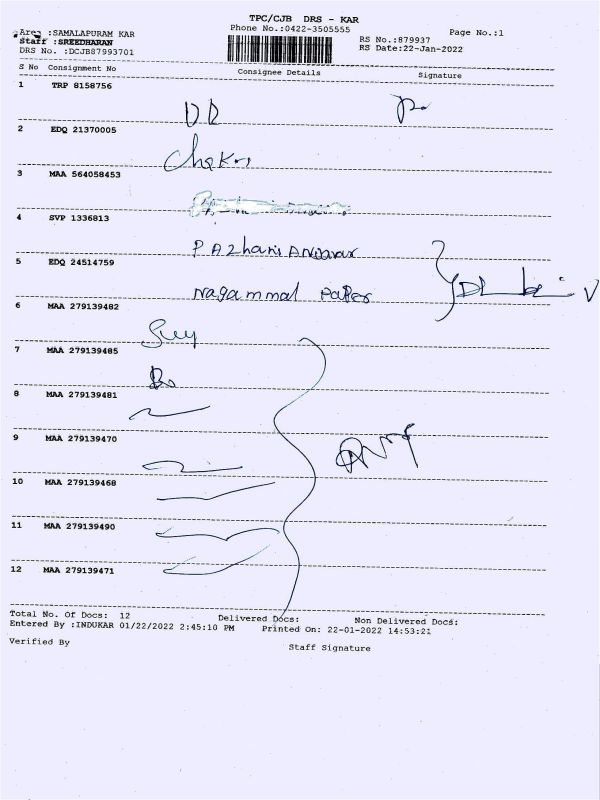 TPC/CJB DRS - KAR
Area :SAMALAPURAM KAR
Phone No.:0422-3505555
Page No.:1
Staff :SREEDHARAN
RS No.:879937
DRS No. :DCJB87993701
RS Date:22-Jan-2022
S No Consignment No Consignee Details Signature
1 TRP 8158756
DD
2 EDQ 21370005
3 MAA 564058453
4 SVP 1336813
5 EDQ 24514759
nagammal paper
6 MAA 279139482
7 MAA 279139485
8 MAA 279139481
9 MAA 279139470
10 MAA 279139468
11 MAA 279139490
12 MAA 279139471
Total No. Of Docs: 12 Delivered Docs: Non Delivered Docs:
Entered By :INDUKAR 01/22/2022 2:45:10 PM Printed On: 22-01-2022 14:53:21
Verified By
Staff Signature